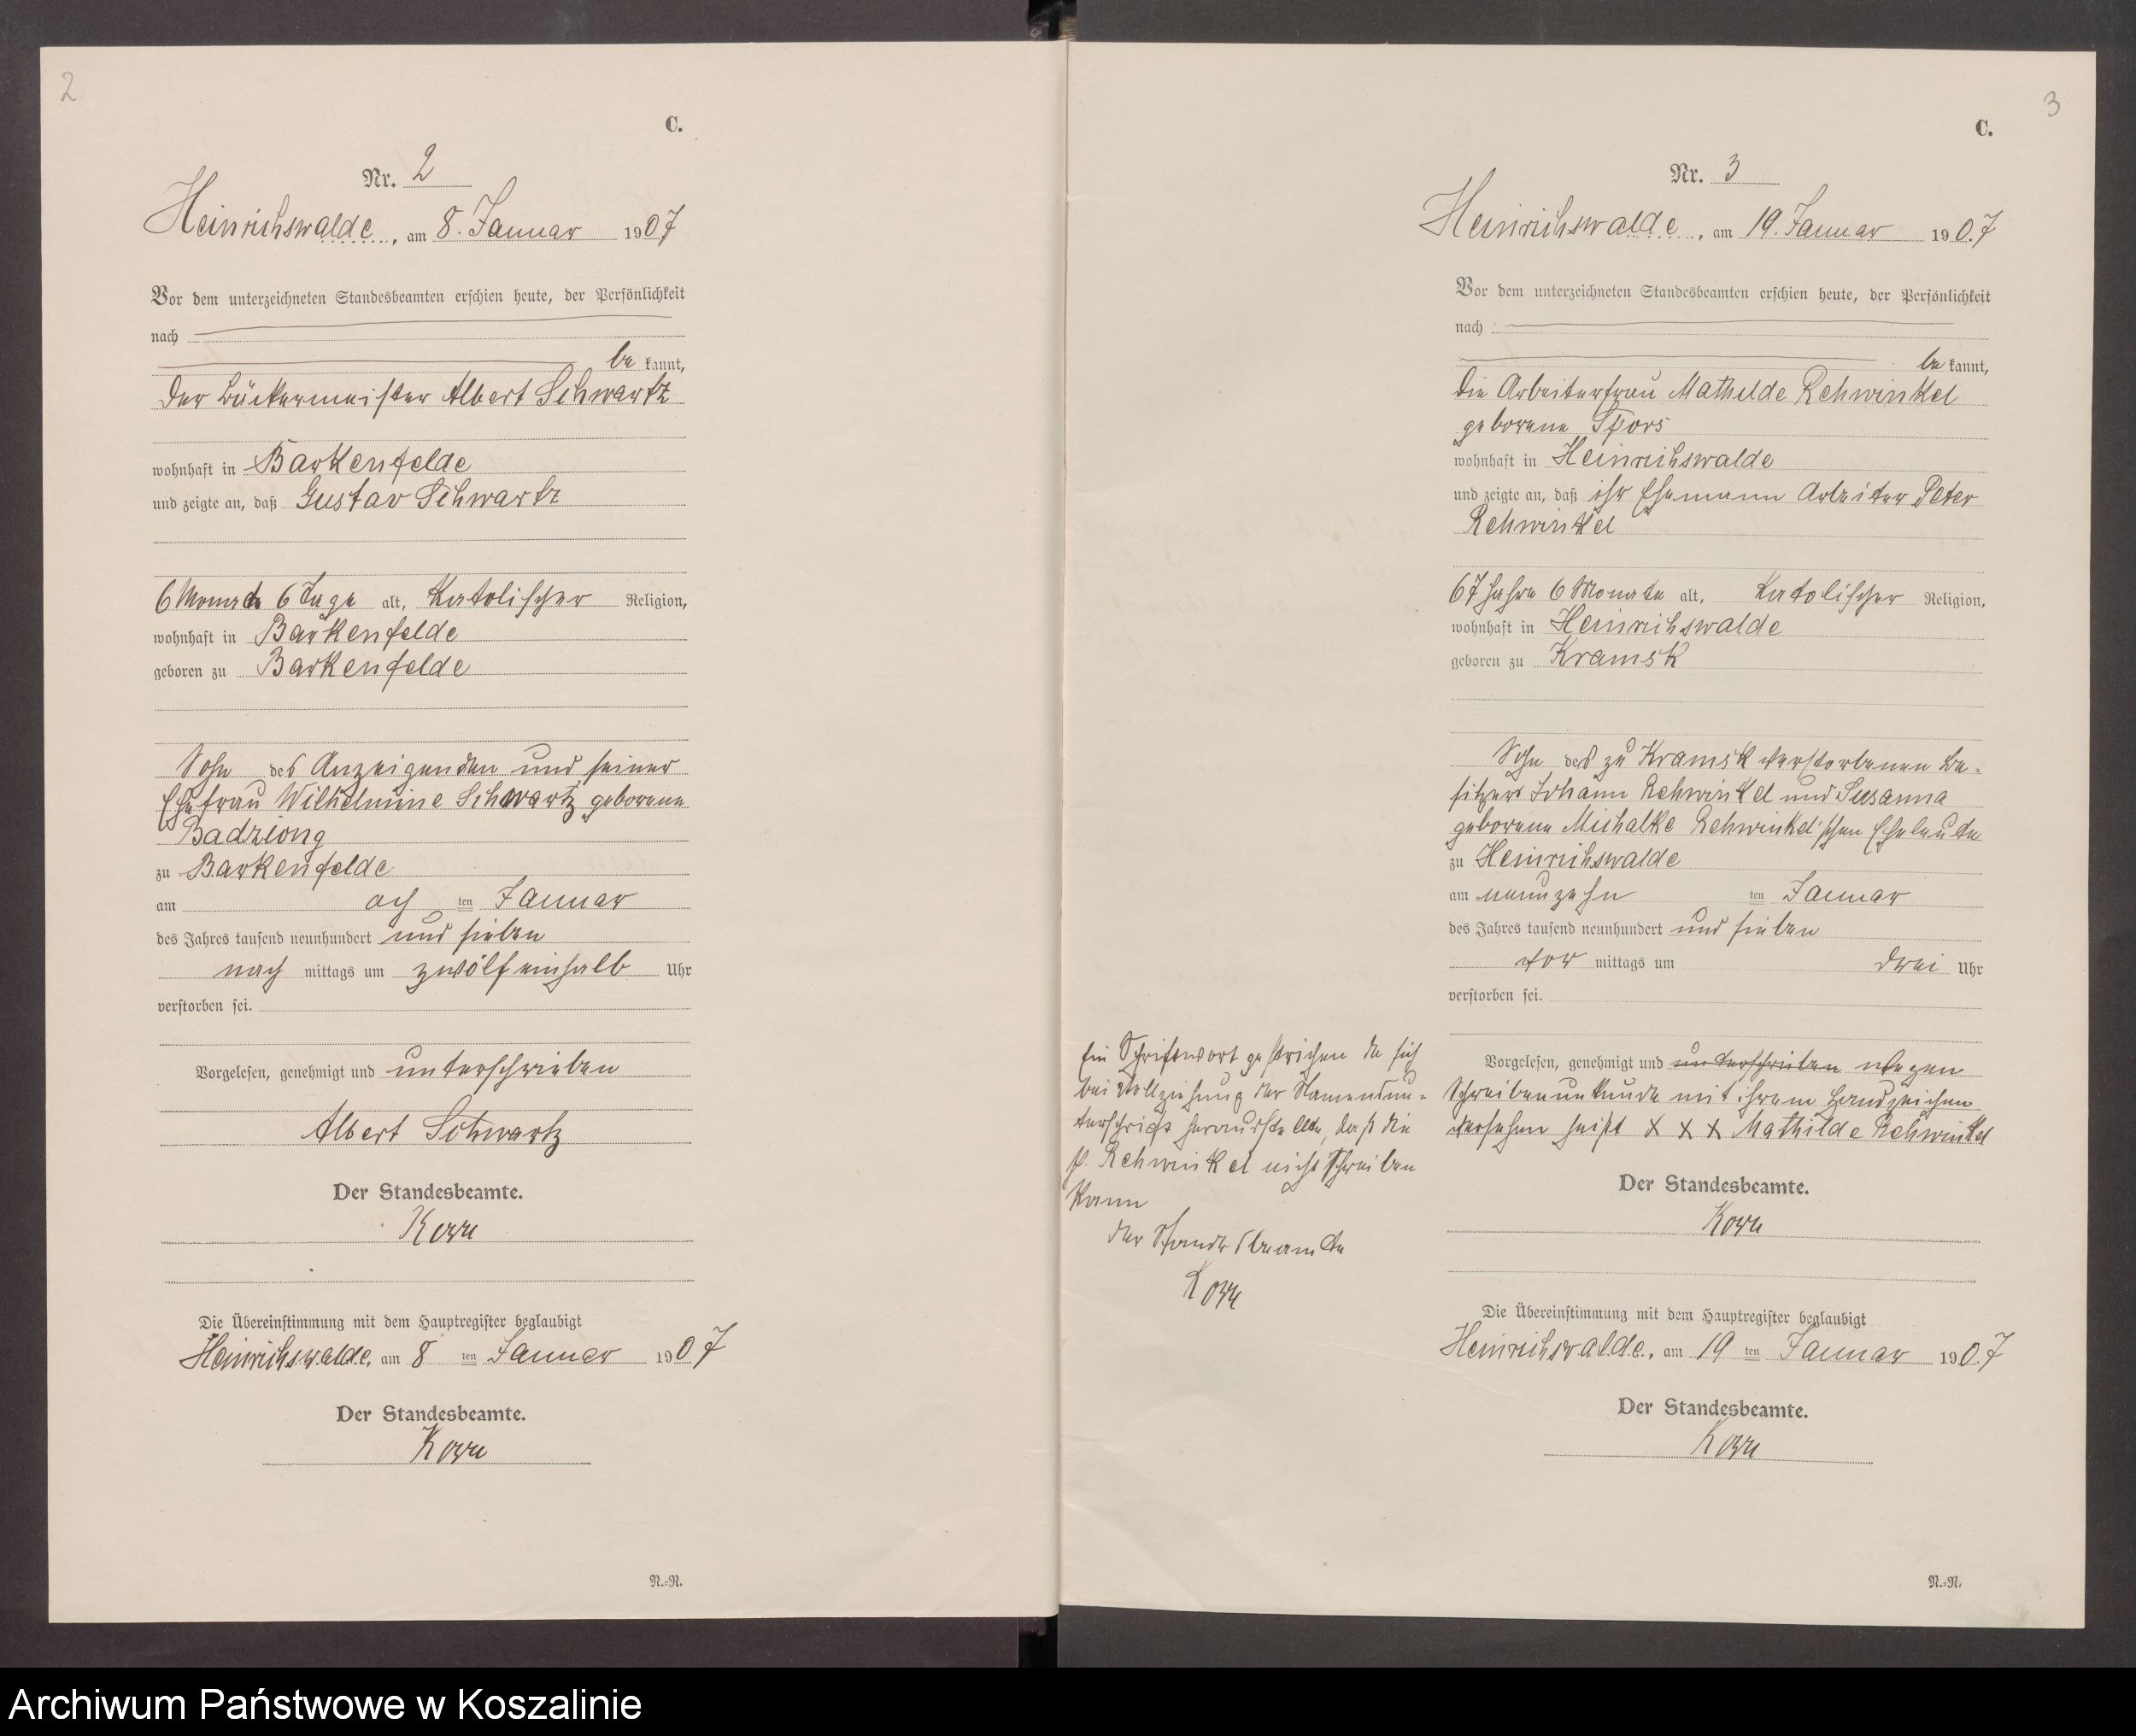 2
C.
Nr. 2
Heinrichswalde, am 8. Januar 1907
Vor dem unterzeichneten Standesbeamten erschien heute, der Persönlichkeit
nach
be kannt,
der Bäckermeister Albert Schwartz
wohnhaft in Barkenfelde
und zeigte an, daß Gustav Schwartz
6 Monate 6 Tage alt, katolischer Religion,
wohnhaft in Barkenfelde
geboren zu Barkenfelde
Sohn des Anzeigenden und seiner
Ehefrau Wilhelmine Schwartz geborene
Badziong
zu Barkenfelde
am ach ten Januar
des Jahres tausend neunhundert und sieben
nach mittags um zwölfeinhalb Uhr
verstorben sei.
Vorgelesen, genehmigt und unterschrieben
Albert Schwartz
Der Standesbeamte.
Die Übereinstimmung mit dem Hauptregister beglaubigt
Heinrichswalde, am 8 ten Januar 1907
Der Standesbeamte.
N.-N.
3
C.
Nr. 3
Heinrichswalde, am 19. Januar 1907
Vor dem unterzeichneten Standesbeamten erschien heute, der Persönlichkeit
nach
be kannt,
die Arbeiterfrau Mathilde Rehwinkel
geborene Spors
wohnhaft in Heinrichswalde
und zeigte an, daß ihr Ehemann Arbeiter Peter
Rehwinkel
67 Jahre 6 Monate alt, katolischer Religion,
wohnhaft in Heinrichswalde
geboren zu Kramsk
Sohn des zu Kramsk verstorbenen Be-
sitzers Johann Rehwinkel und Susanna
geborene Michalke Rehwinkel'schen Eheleute
zu Heinrichswalde
am neunzehn ten Januar
des Jahres tausend neunhundert und sieben
vor mittags um drei Uhr
verstorben sei.
Vorgelesen, genehmigt und unterschrieben wegen
Schreibenunkunde mit ihrem Handzeichen
versehen heißt X X X Mathilde Rehwinkel
Der Standesbeamte.
Die Übereinstimmung mit dem Hauptregister beglaubigt
Heinrichswalde, am 19 ten Januar 1907
Der Standesbeamte.
N.-N.
Ein Schriftwort gestrichen da sich
bei Vollziehung der Namensun-
terschrift herausstellte, daß die
p. Rehwinkel nicht schreiben
kann
der Standesbeamte
Archiwum Państwowe w Koszalinie